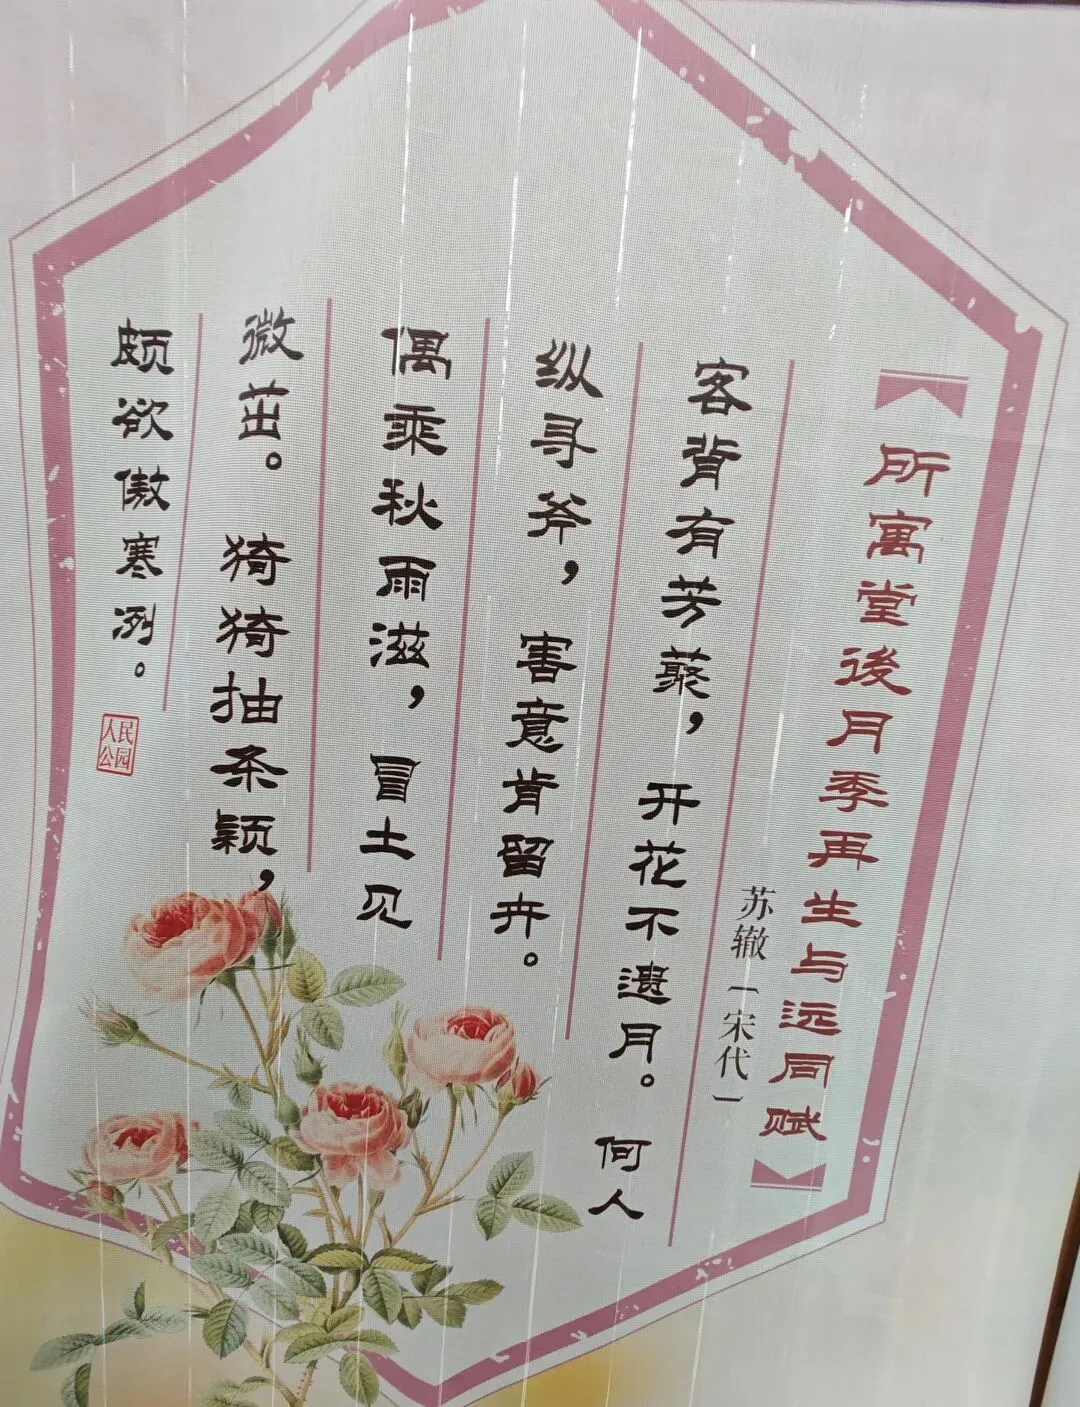 所寓堂後月季再生与远同赋
苏辙［宋代］
客背有芳蕤，开花不遗月。何人
纵寻斧，害意肯留卉。
偶乘秋雨滋，冒土见
微茁。猗猗抽条颖，
颇欲傲寒冽。
人民公园